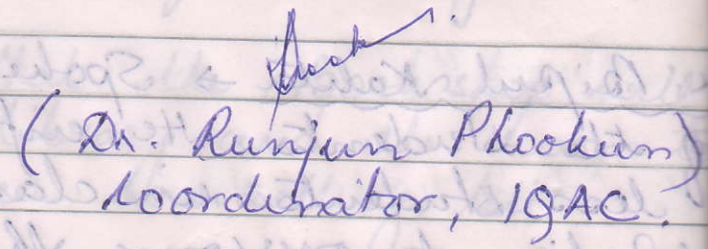 (Dr. Runjun Phookun)
Coordinator, IQAC.